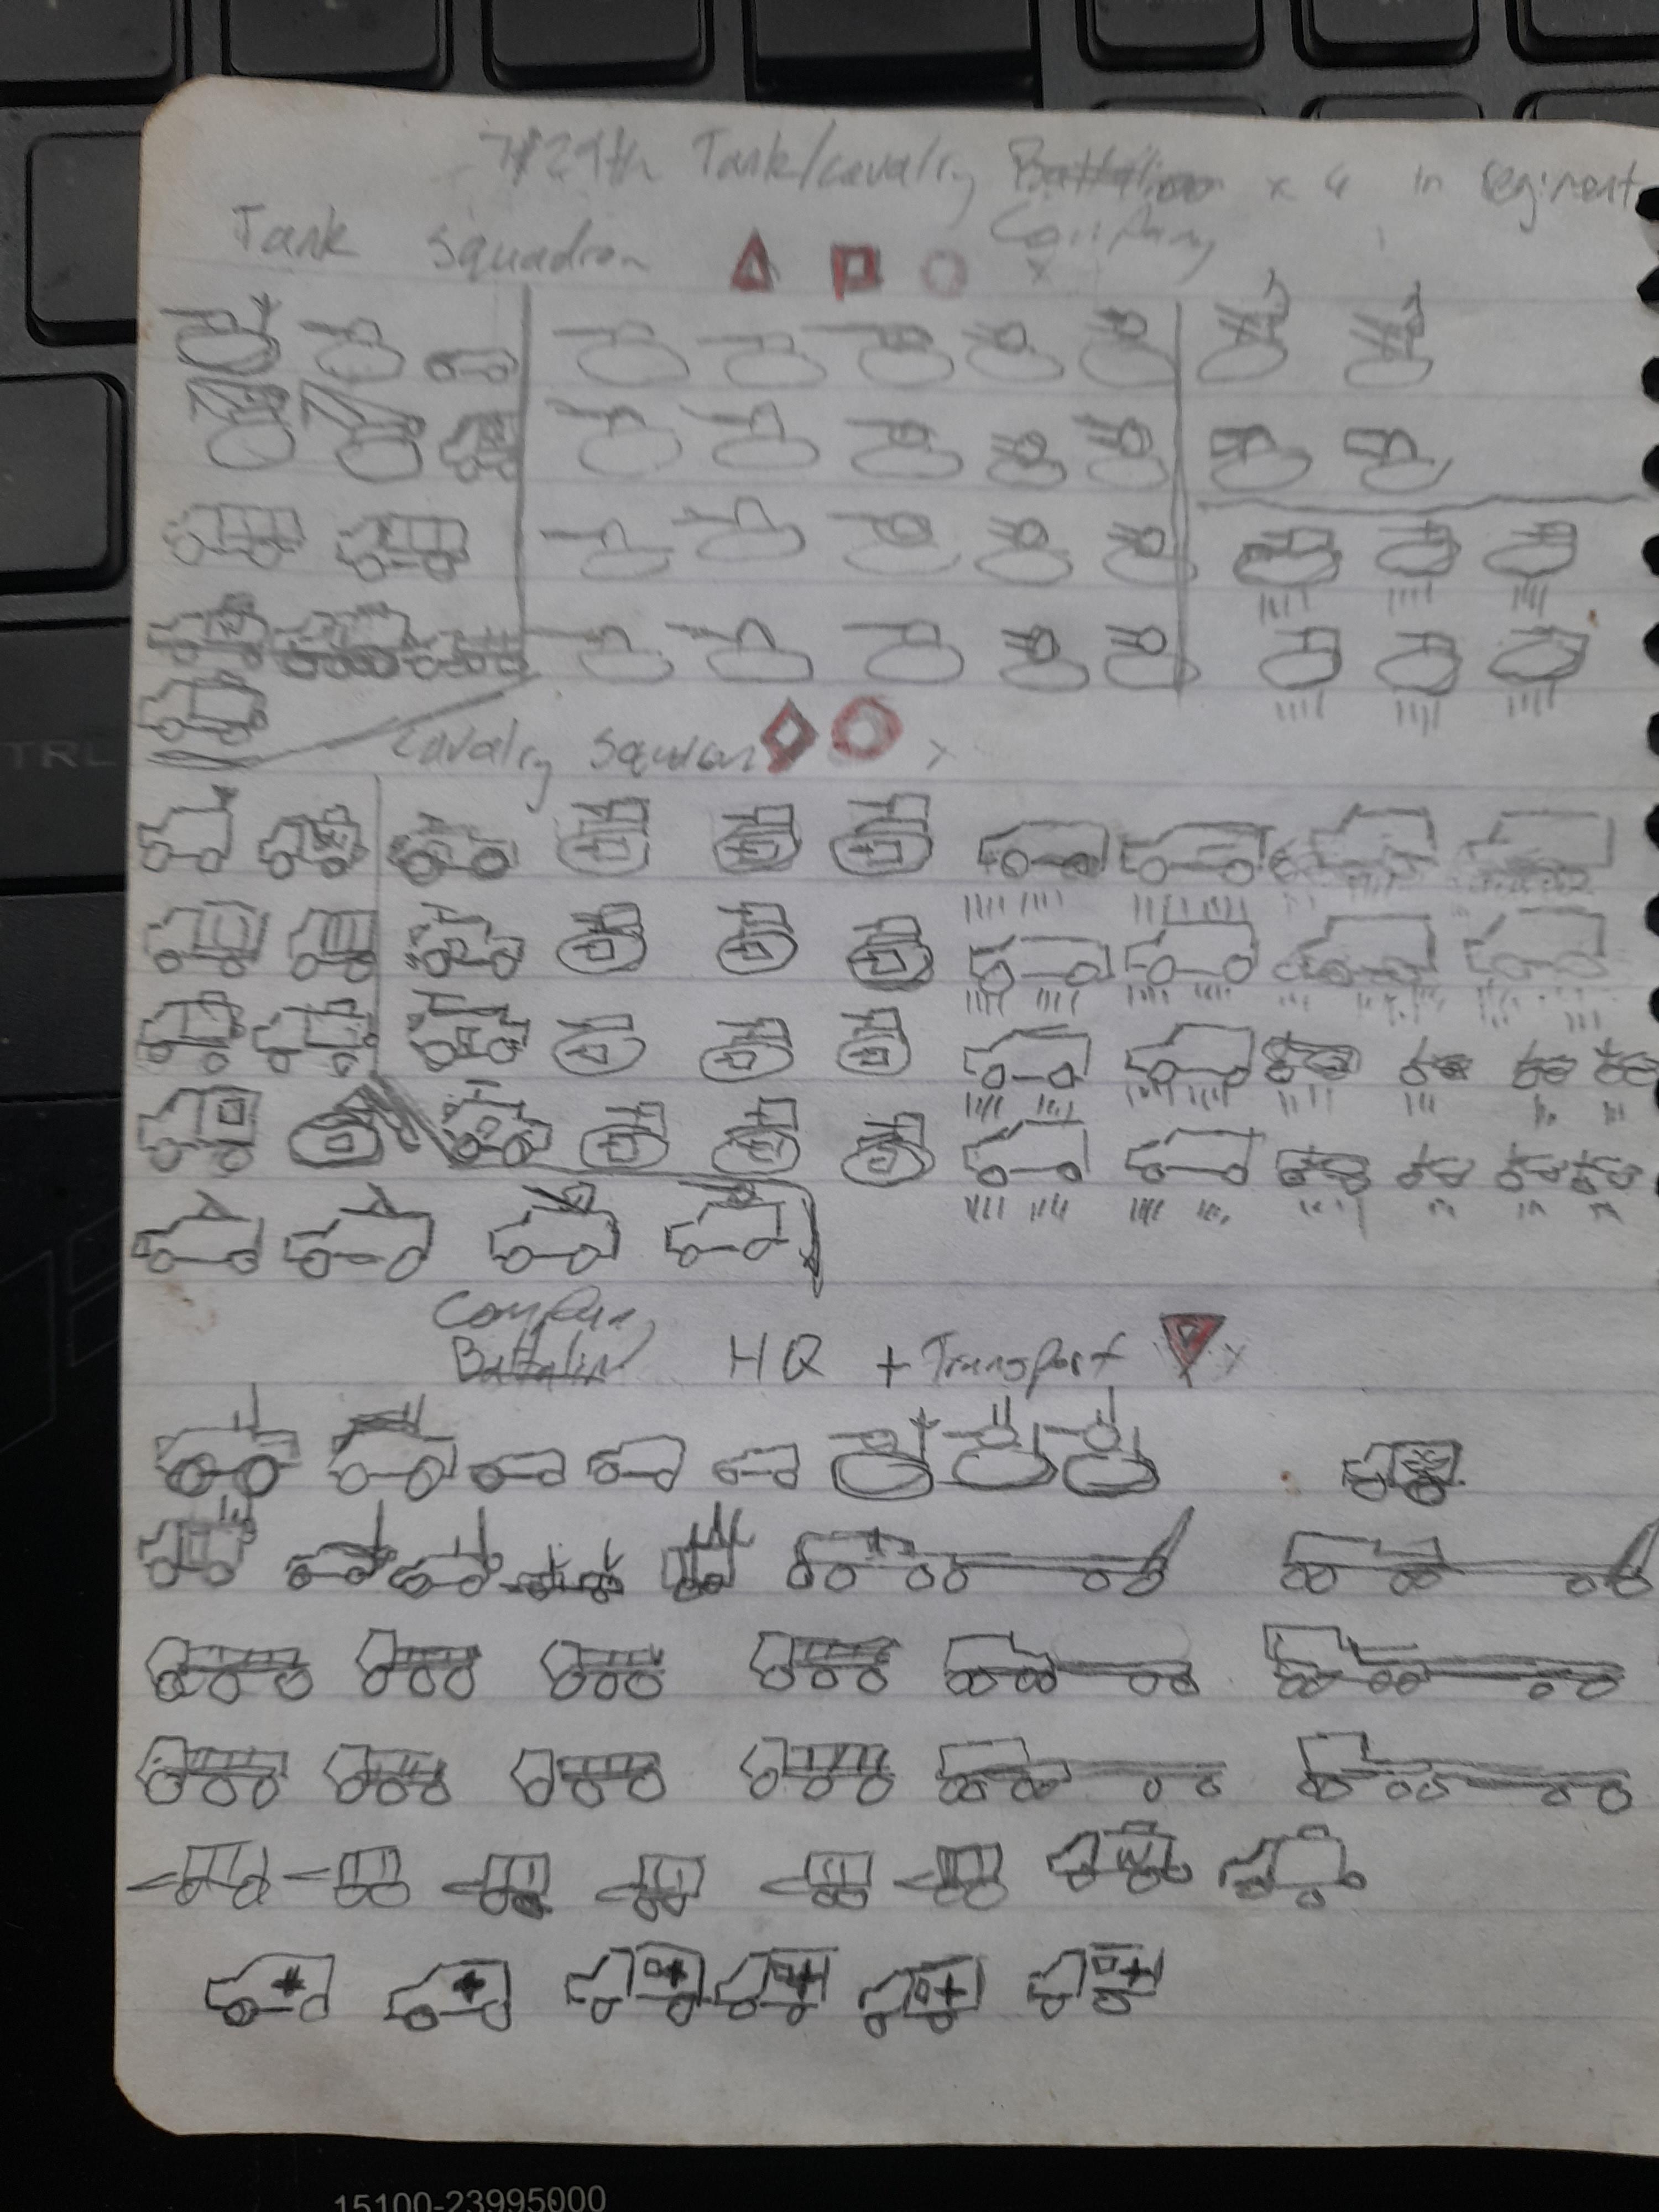 29th Tank/cavalry Battalion x 4 in regiment
Tank Squadron Company
x
Cavalry Squdron x
Company
Battalin HQ + Transport x
CTRL
15100-23995000